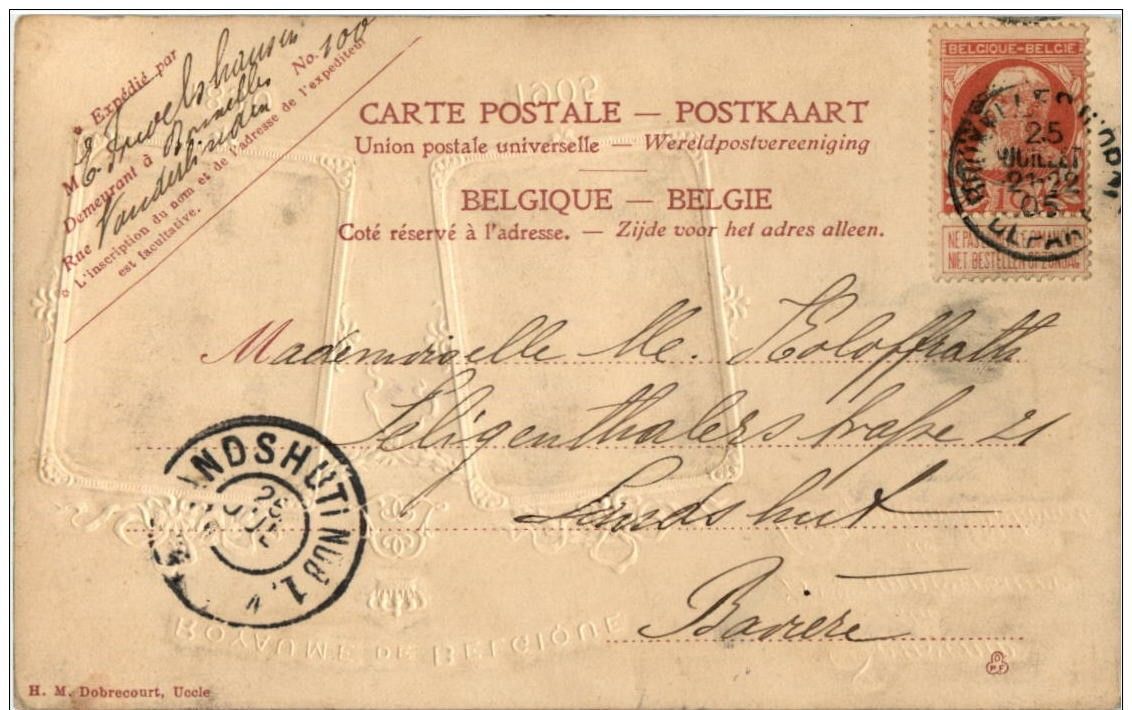 * Expédié par
M
Demeurant à Bruxelles
Rue Vanderlinden No. 100
* L'inscription du nom et de l'adresse de l'expéditeur
est facultative.
1905
CARTE POSTALE — POSTKAART
Union postale universelle — Wereldpostvereeniging
BELGIQUE — BELGIE
Coté réservé à l'adresse. — Zijde voor het adres alleen.
BELGIQUE-BELGIE
25
JUILLET
21-22
05
DEPART
NE PAS LIVRER LE DIMANCHE
NIET BESTELLEN OP ZONDAG
Mademoiselle M. Holoffrath
Seligenthalerstraße 21
Landshut
Bavière
LANDSHUT
ROYAUME DE BELGIQUE
H. M. Dobrecourt, Uccle